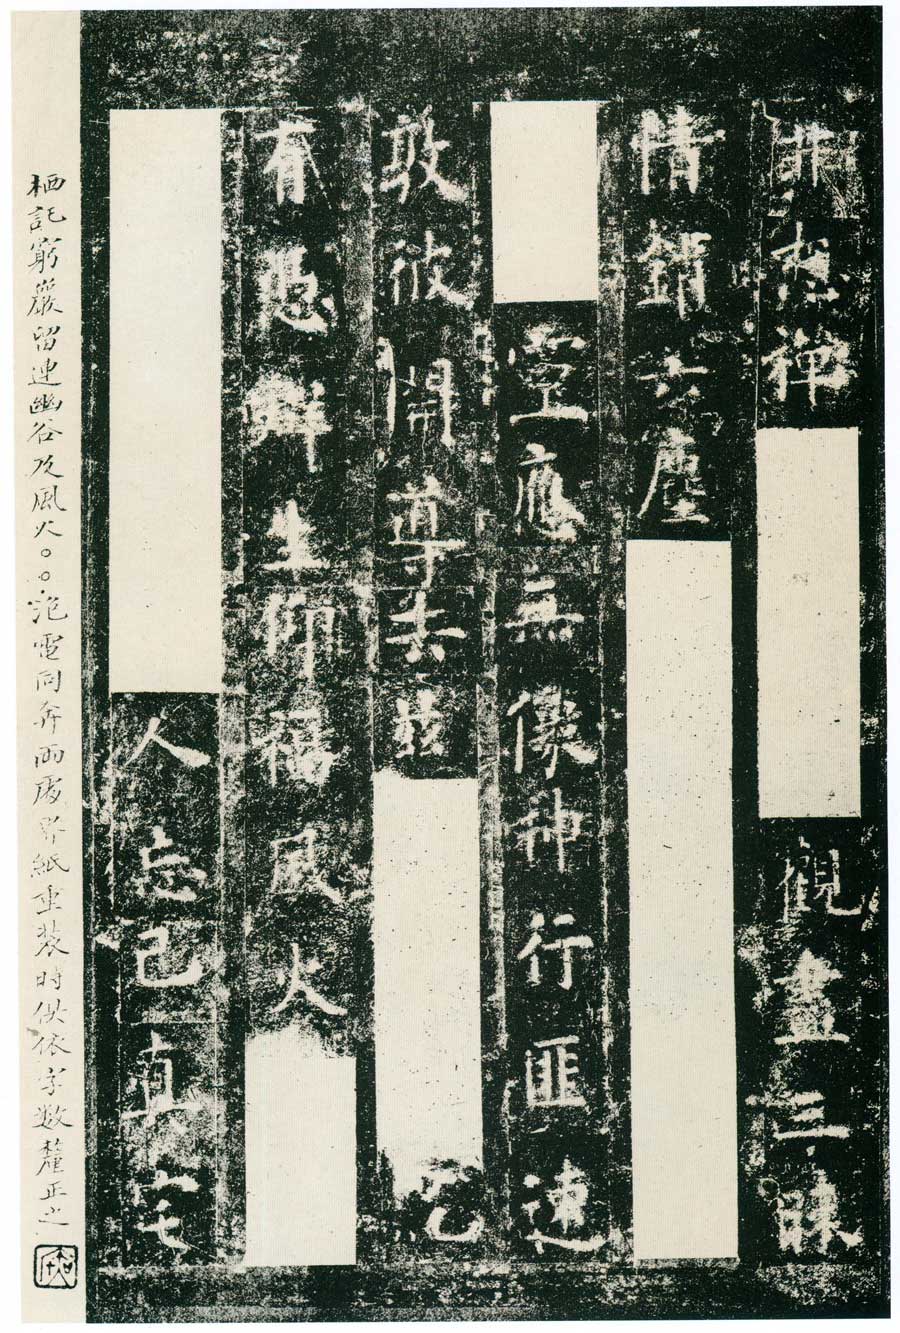 非想禪 觀盡三昧
情銷六塵
靈應無像神行匪速
敦彼開導去茲
有憑解生仰福風火
人忘己真宅
栖託窮巖留連幽谷及風火。。泡電同奔兩處界紙重裝時俱依字數釐正之